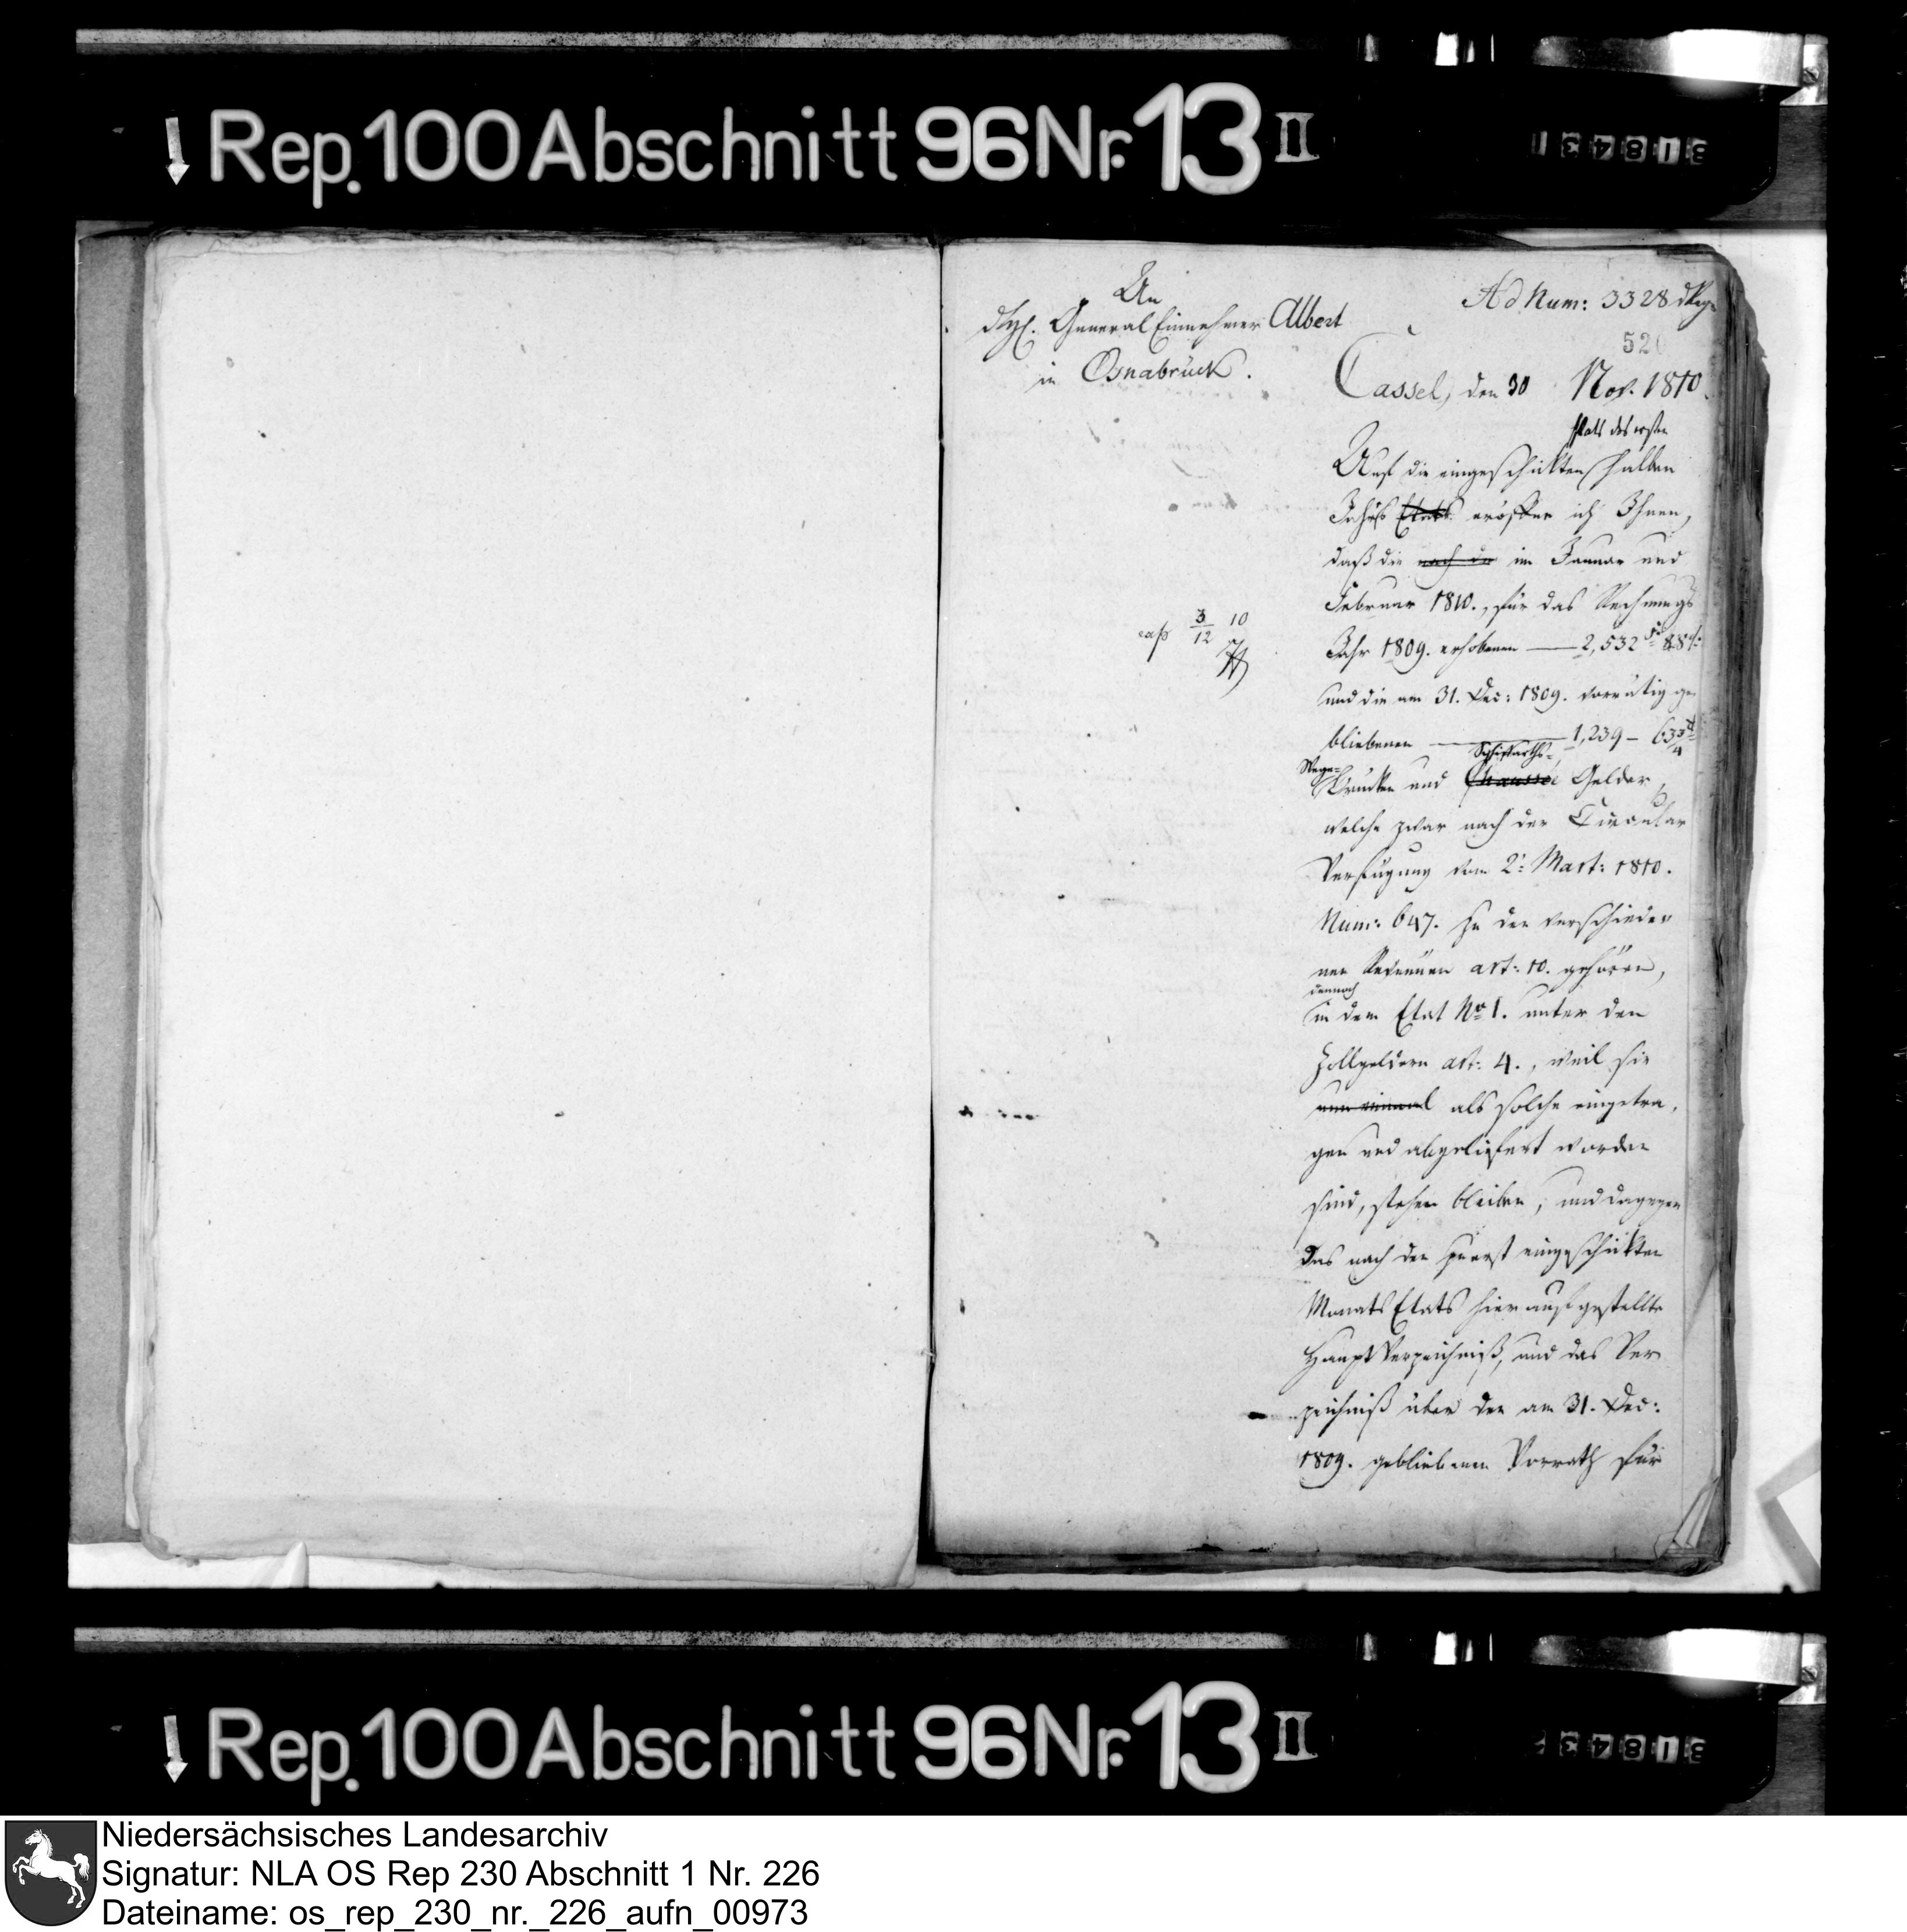 Rep. 100 Abschnitt 96 Nr. 13 II
318431
An
General Einnehmer Albert
in Osnabrück.
Ad Num: 3328
520
Cassel, den 30 Nov. 1810.
falls des ersten
Auf die eingeschickten halben
Jahrs Etats eröffne ich Ihnen,
daß die nach der im Januar und
Februar 1810., für das Rechnungs
Jahr 1809. erhobenen — 2,532 88
und die am 31. Dec: 1809. vorrätig ge-
bliebenen — 1,239 — 63
Schiffarths-
Wege-
Brücken und Chaussée Gelder,
welche zwar nach der Circular
Verfügung vom 2. Mart: 1810.
Num: 647. zu den verschiede-
nen Revenüen art: 10. gehören,
dennoch
in dem Etat No 1. unter den
Zollgeldern art: 4., weil sie
nun einmal als solche eingetra-
gen und abgeliefert worden
sind, stehen bleiben, und dagegen
das nach den zuerst eingeschickten
Monats Etats hier aufgestellte
Haupt Verzeichniß, und das Ver
zeichniß über den am 31. Dec:
1809. gebliebenen Vorrath für
3/12 10
Rep. 100 Abschnitt 96 Nr. 13 II
Niedersächsisches Landesarchiv
Signatur: NLA OS Rep 230 Abschnitt 1 Nr. 226
Dateiname: os_rep_230_nr._226_aufn_00973